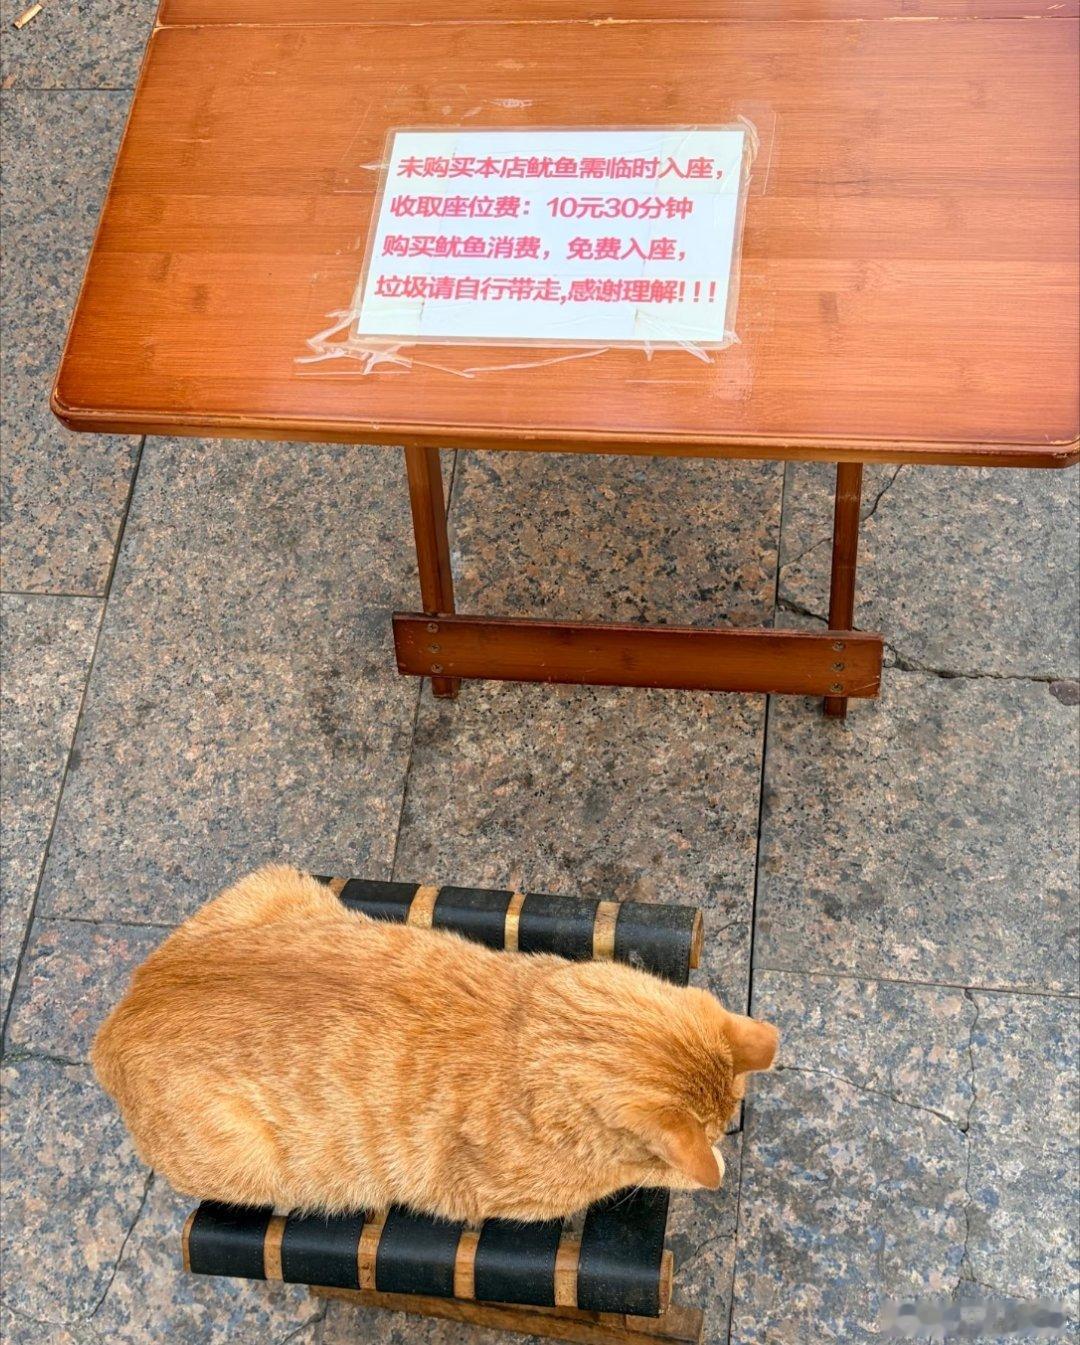 未购买本店鱿鱼需临时入座，
收取座位费：10元30分钟
购买鱿鱼消费，免费入座，
垃圾请自行带走,感谢理解!!!